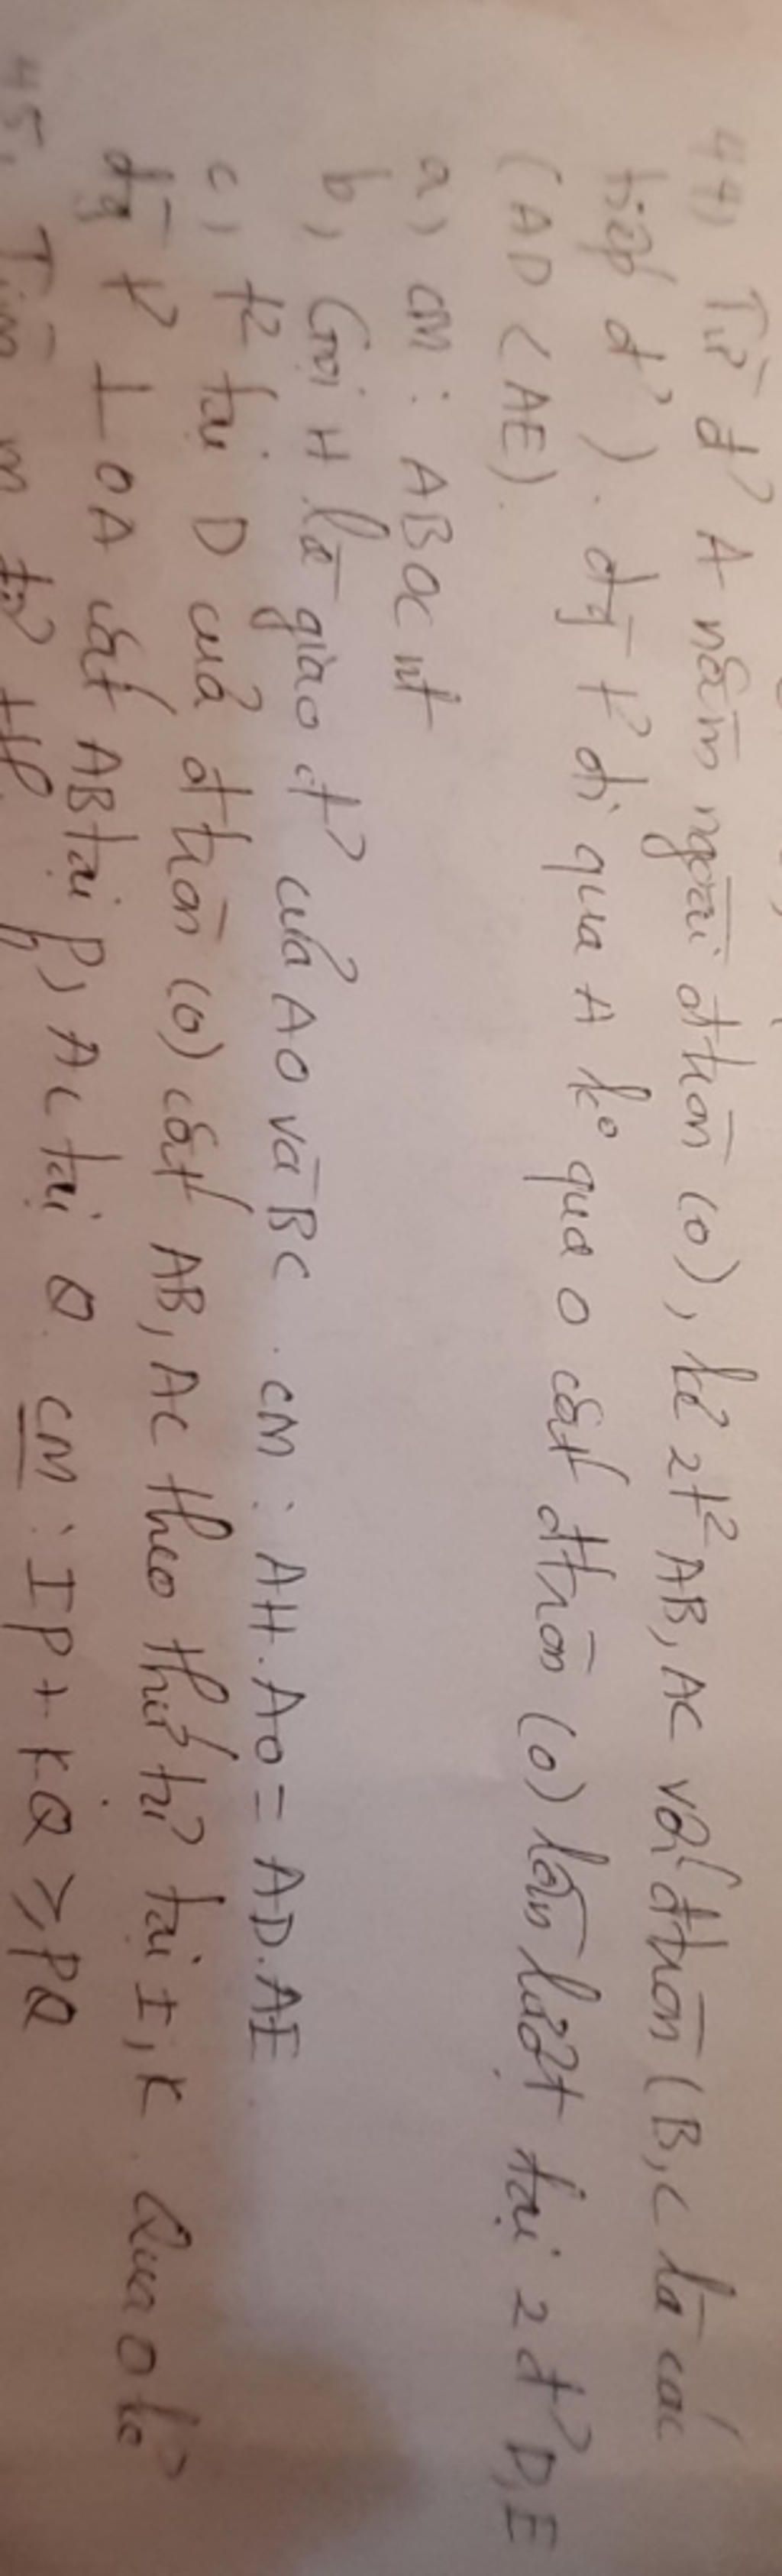 44) Từ đ' A nằm ngoài đtròn (O), kẻ 2t² AB, AC với đtròn (B, C là các
tiếp đ'). đg t' đi qua A ko qua O cắt đtròn (O) lần lượt tại 2 đ' D, E
(AD < AE).
a, CM: ABOC nt
b, Gọi H là giao đ' của AO và BC. CM: AH.AO = AD.AE.
c, t² tại D của đtròn (O) cắt AB, AC theo thứ tự tại I, K. Qua O kẻ
đg t' ⊥ OA cắt AB tại P, AC tại Q. CM: IP + KQ ≥ PQ
45, Tìm m để